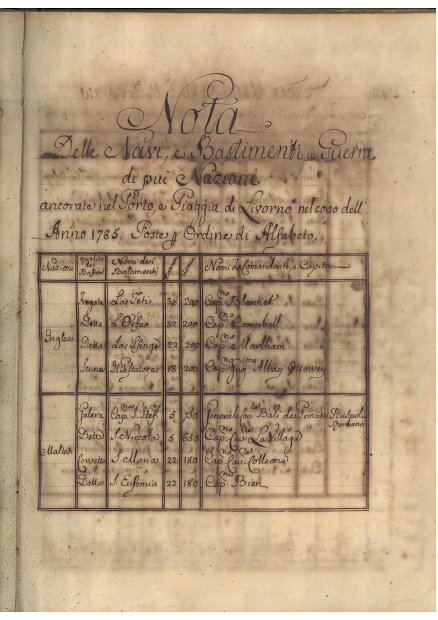 Nota
Delle Navi, e Bastimenti da Guerra
di più Nazioni
ancorate nel Porto, e Piaggia di Livorno nel corso dell'
Anno 1785. Poste per Ordine di Alfabeto.
Nazioni Qualità dei Bastim.ti Nomi dei Bastimenti Nomi de Comandanti, e Capitani
Inglesi
Fregata La Teti 38 240 Cap.no Blanket
Detta L'Orfeo 32 200 Cap.no Campbell
Detta La Sfinge 22 200 Cap.no Marlham
Il Pescatore 18 200 Cap.no Albay
Maltesi
Galera Cap.na S. Stef.o 5 730 Generale Bali de Principi Ruspoli
Detta S. Niccola 5 650 Cap.no Cav. La Village
Corvetta S. Maria 22 180 Cap.no Cav. Colleone
Detta S. Eufemia 22 180 Cap.no Bien